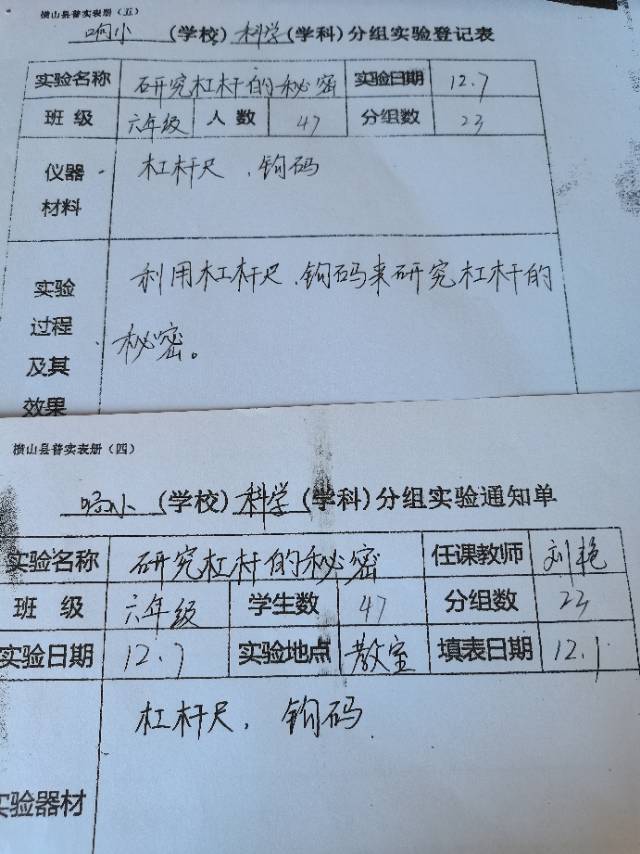 横山县普实表册（五）
响小（学校）科学（学科）分组实验登记表
实验名称 研究杠杆的秘密 实验日期 12.7
班 级 六年级 人 数 47 分组数 23
仪器材料 杠杆尺、钩码
实验过程及其效果 利用杠杆尺、钩码来研究杠杆的
秘密。
横山县普实表册（四）
响小（学校）科学（学科）分组实验通知单
实验名称 研究杠杆的秘密 任课教师 刘艳
班 级 六年级 学生数 47 分组数 23
实验日期 12.7 实验地点 教室 填表日期 12.1
实验器材 杠杆尺、钩码